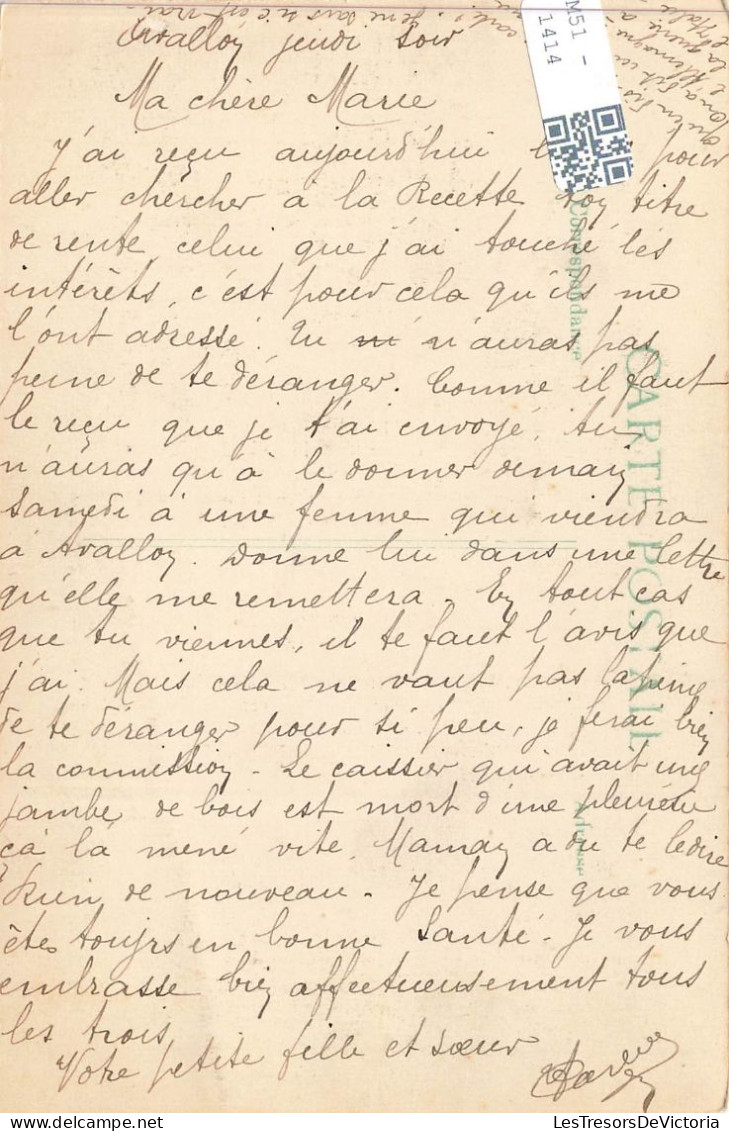 Avallon jeudi soir
Ma chère Marie
J'ai reçu aujourd'hui pour
aller chercher à la Recette ton titre
de rente celui que j'ai touché les
intérêts, c'est pour cela qu'ils me
l'ont adressé. Tu n'auras pas
peine de te déranger. Comme il faut
le reçu que je t'ai envoyé, tu
n'auras qu'à le donner demain
samedi à une femme qui viendra
à Avallon. Donne lui dans une lettre
qu'elle me remettera - En tout cas
que tu viennes, il te faut l'avis que
j'ai. Mais cela ne vaut pas la peine
de te déranger pour si peu, je ferai bien
la commission - Le caissier qui avait une
jambe de bois est mort d'une pleurésie
çà là mené vite. Maman a du te le dire
Rien de nouveau - Je pense que vous
êtes toujrs en bonne santé - Je vous
embrasse bien affectueusement tous
les trois
Votre petite fille et sœur
M51 -
1414
Correspondance
CARTE POSTALE
Adresse
LesTresorsDeVictoria - Delcampe.net